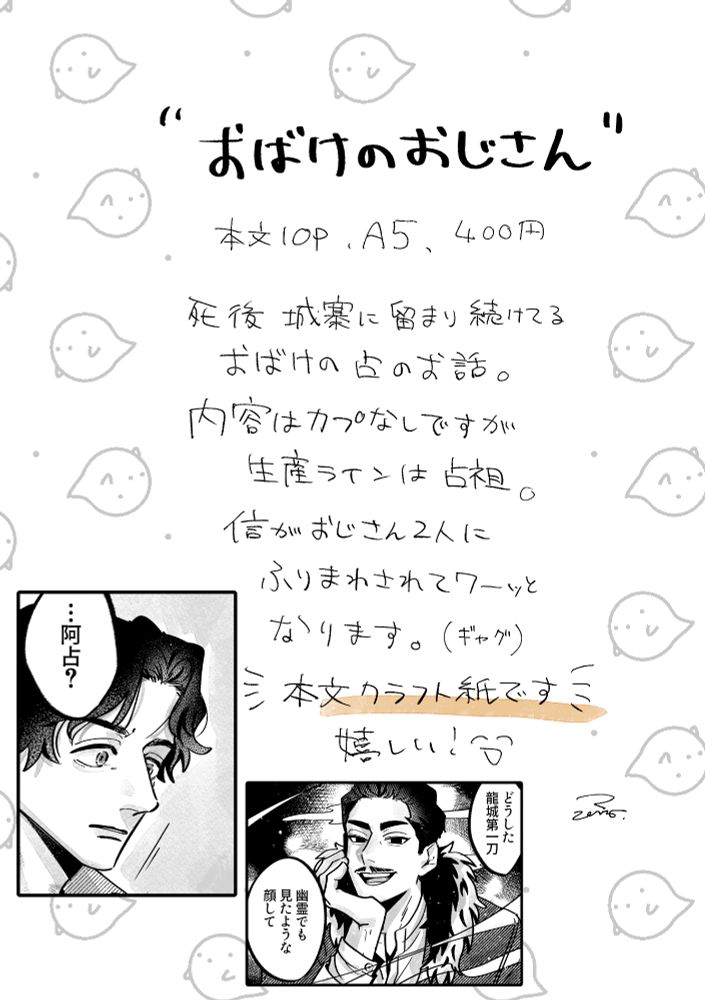 “おばけのおじさん”
本文10P、A5、400円
死後 城寨に留まり続けてる
おばけの占のお話。
内容はカプなしですが
生産ラインは占祖。
信がおじさん2人に
ふりまわされてワーッと
なります。(ギャグ)
本文クラフト紙です
嬉しい!
…阿占?
どうした
龍城第一刀
幽霊でも
見たような
顔して